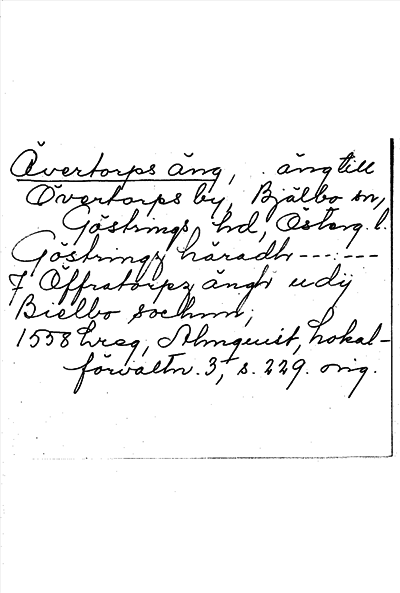 Övertorps äng, äng till
Övertorps by, Bjälbo sn,
Göstrings hd, Österg. l.
Göstringz häradh ------
7 Öffratorpz ängh udij
Bielbo sochnn;
1558 hreg, Almquist, Lokal-
förvaltn. 3, s. 229. orig.